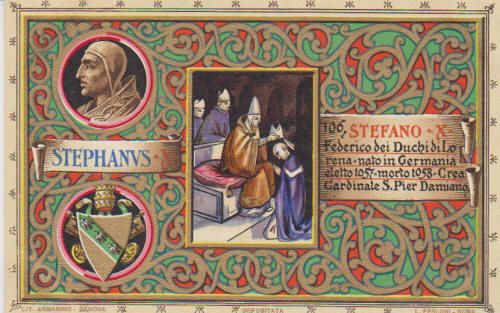 STEPHANVS · X
106, STEFANO · X
Federico dei Duchi di Lo
rena-nato in Germania
eletto 1057-morto 1058-Crea
Cardinale S. Pier Damiano
LIT. ARMANINO - GENOVA
DEPOSITATA
ROMA